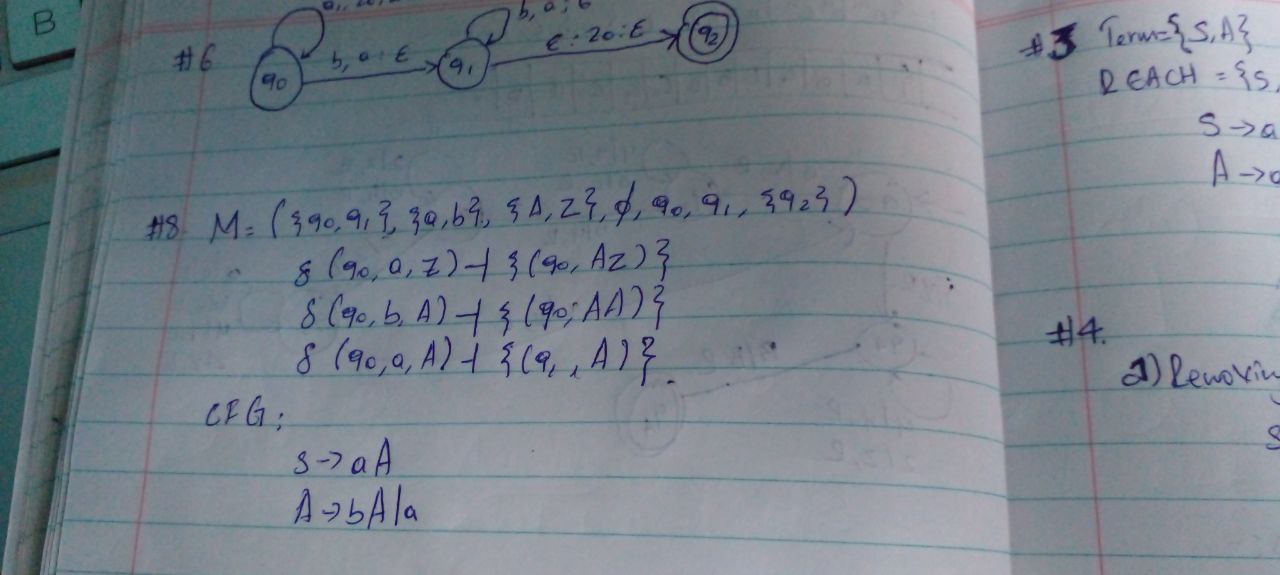 B
#6
q0
b, a : ε
q1
b, a : ε
ε : z0 : ε
q2
#8 M = ({q0, q1}, {a, b}, {A, Z}, ϕ, q0, q1, {q2})
δ (q0, a, z) ⊣ {(q0, Az)}
δ (q0, b, A) ⊣ {(q0; AA)}
δ (q0, a, A) ⊣ {(q1, , A)}.
CFG:
S → aA
A → bA|a
#3 Term = {S, A}
REACH = {S,
S → a
A → a
#4.
a) Removin
S